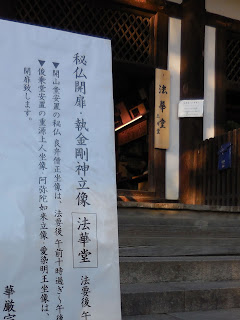 秘仏開扉・執金剛神立像 法華堂 法要後、午
▼開山堂安置の秘仏 良弁僧正坐像は、法要後 午前十時過ぎ〜午後
▼俊乗堂安置の重源上人坐像・阿弥陀如来立像・愛染明王坐像は、
開扉致します。
華厳宗
法華堂